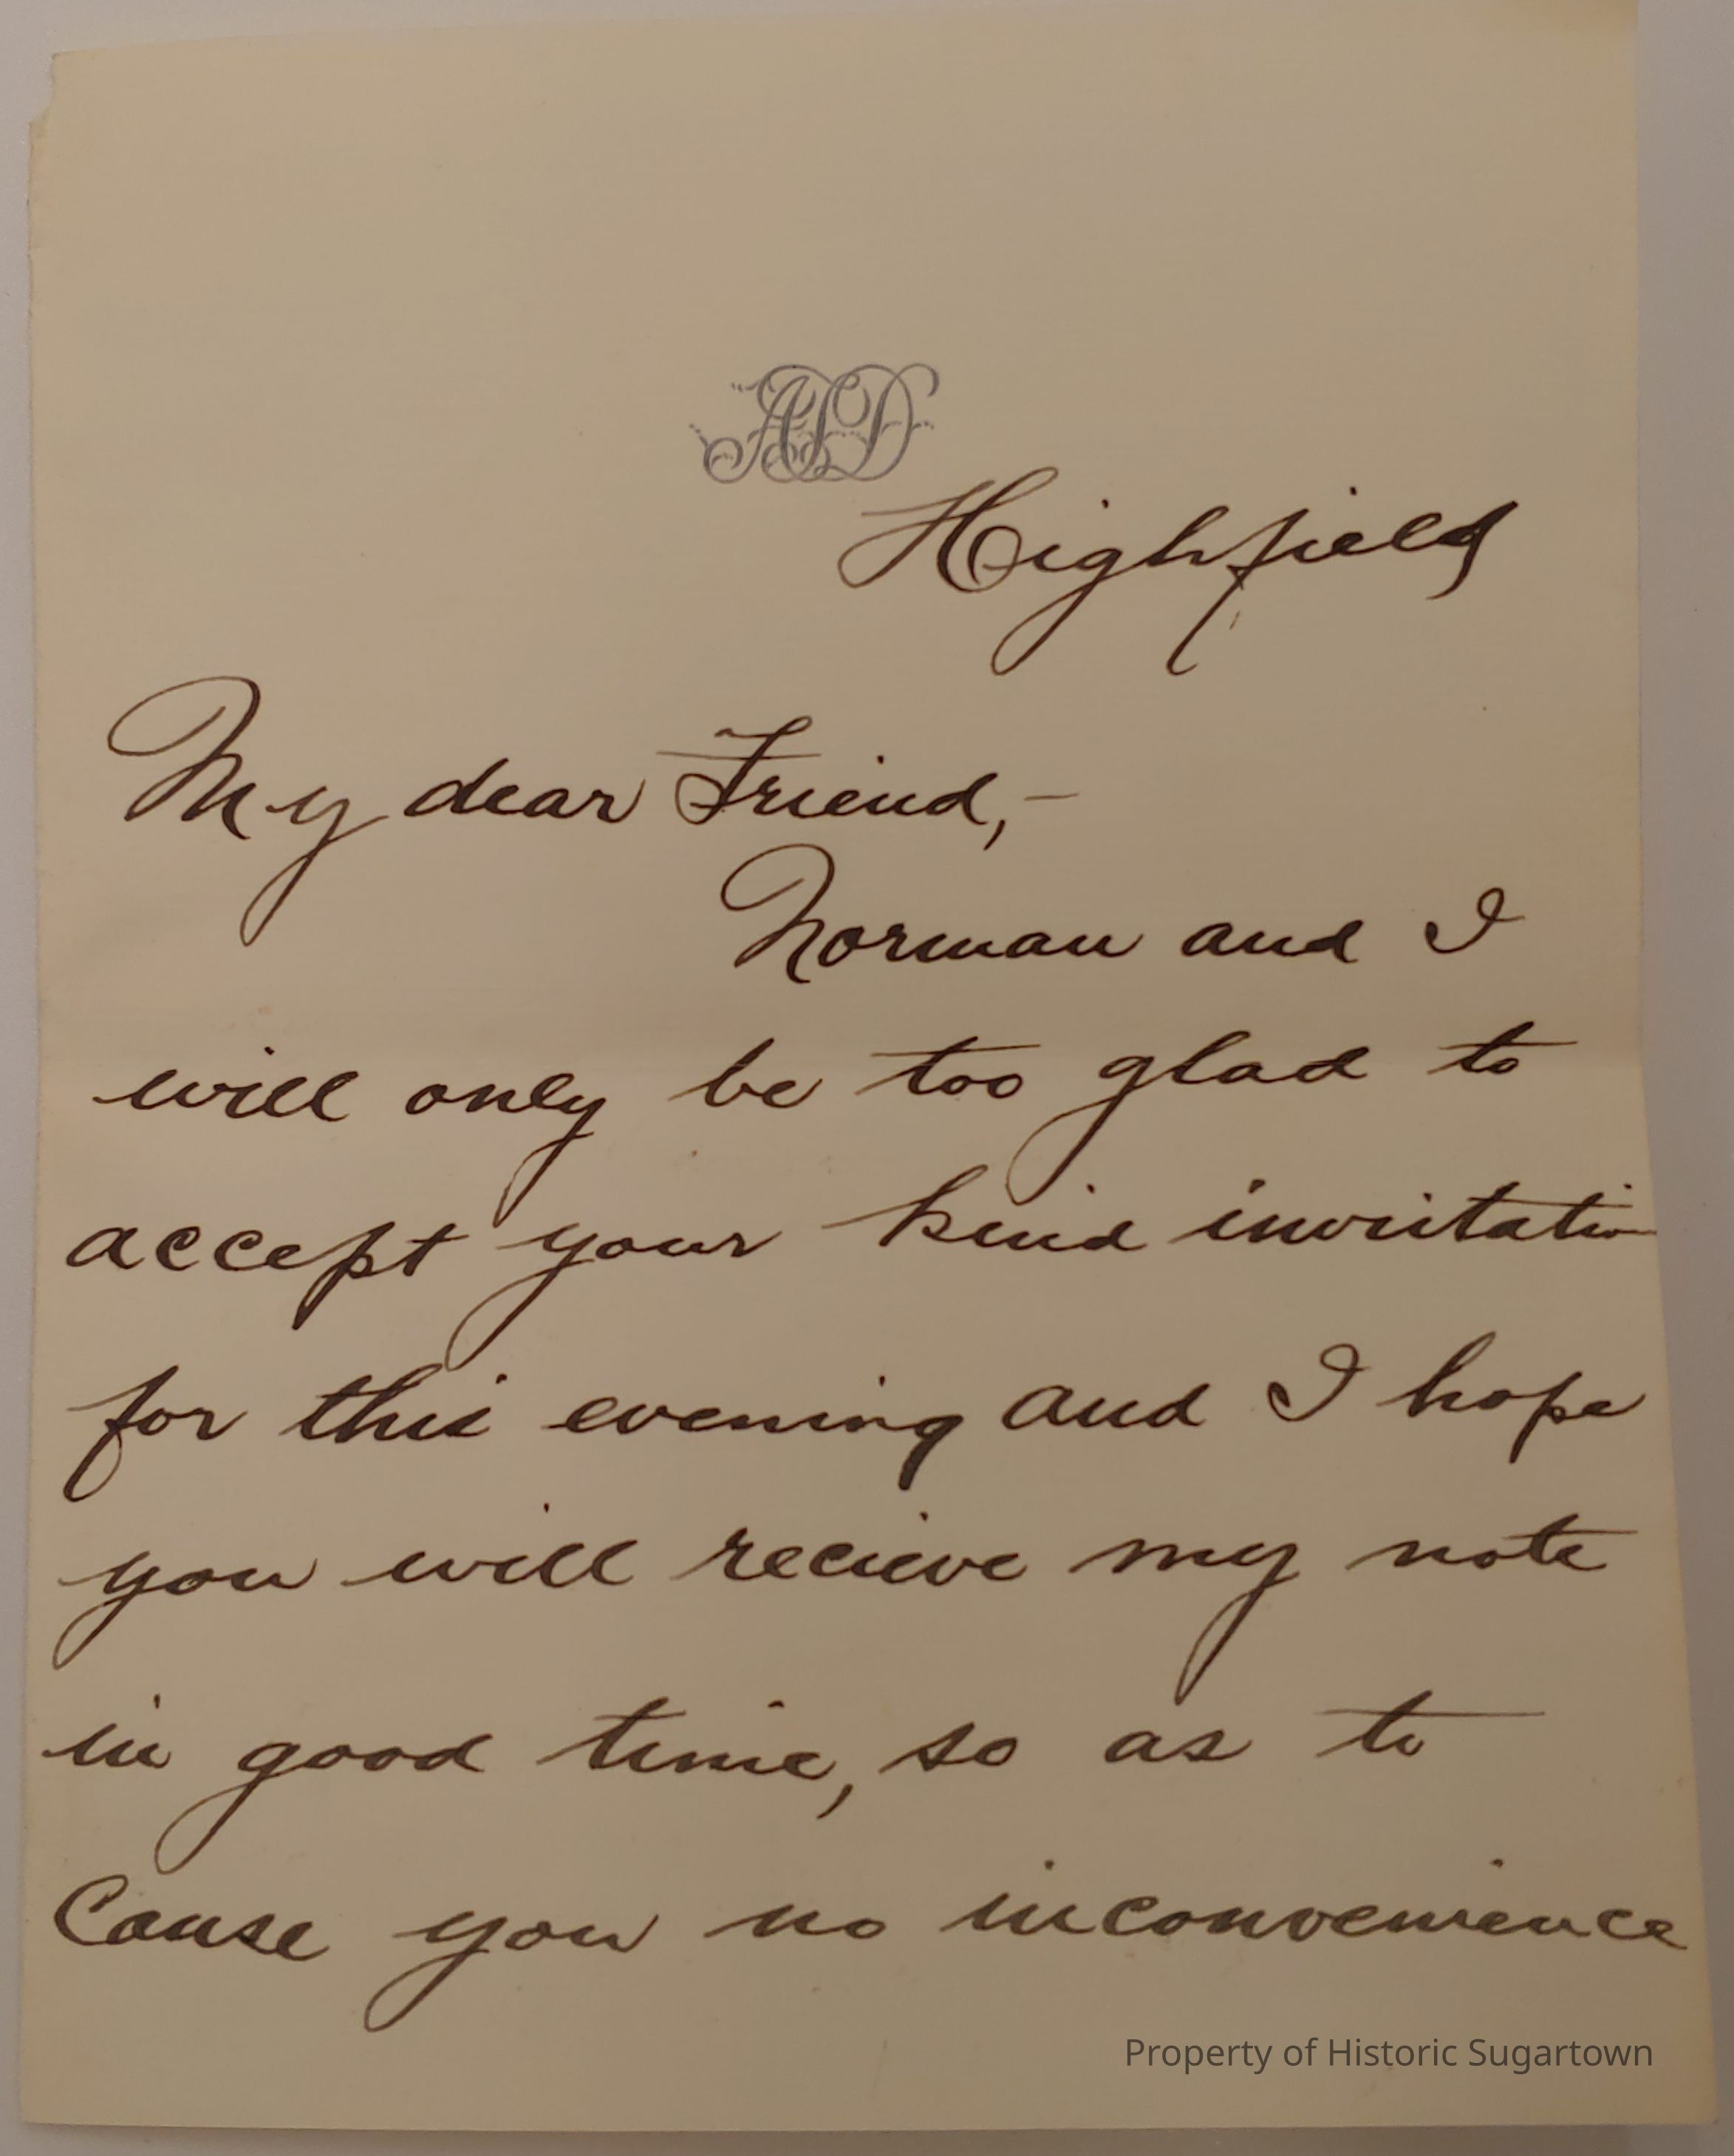 Highfield
My dear Friend,—
Norman and I
will only be too glad to
accept your kind invitation
for this evening and I hope
you will recieve my note
in good time, so as to
Cause you no inconvenience
Property of Historic Sugartown